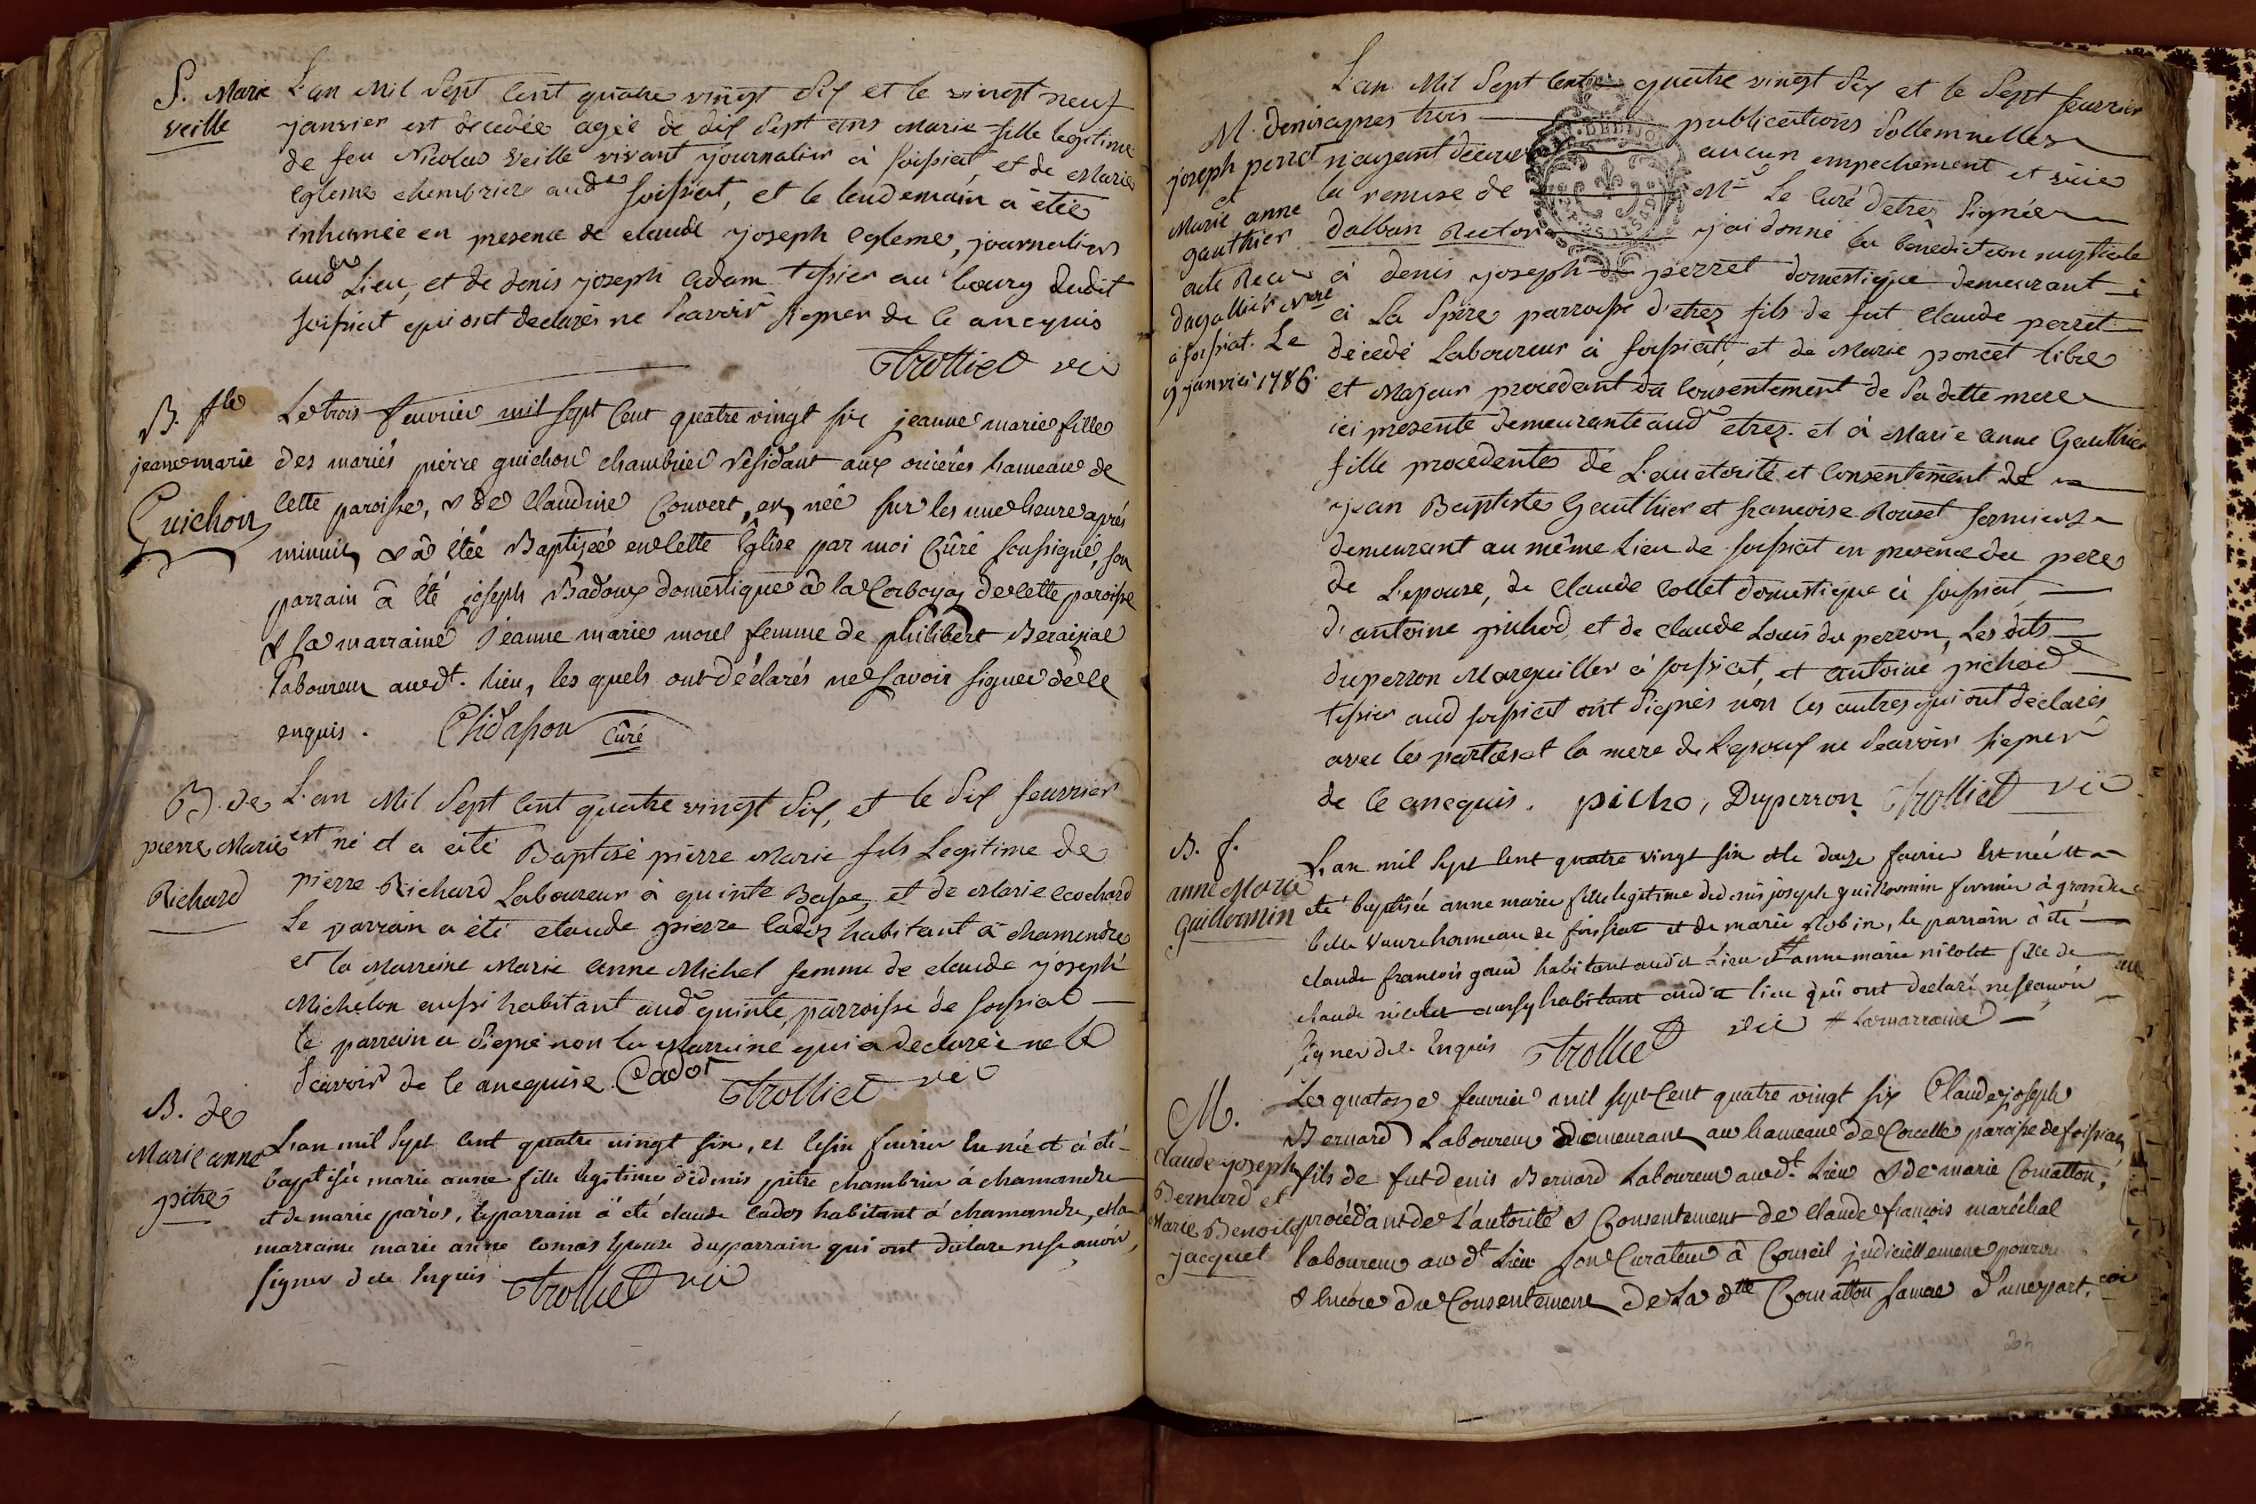 S. Marie
Veille
L'an Mil Sept Cent quatre vingt Six et le vingt neuf
janvier est decedée agée de dix Sept ans Marie fille legitime
de feu Nicolas Veille vivant journalier à foissiat et de Marie
Egleme chambrier aud foissiat, et le lendemain a étée
inhumée en presence de claude joseph Egleme, journalier
aud Lieu, et de denis joseph Adam tissier au bourg dudit
foissiat qui ont declarés ne Scavoir signer de ce ancquis
Trolliet vic
B. f.lle
jeanne marie
Guichon
Le trois fevrier mil sept Cent quatre vingt six jeanne marie fille
des mariés pierre guichon chambrier résidant aux hameau de
cette paroisse, & de Claudine Convert, est née sur les une heure après
minuit & à étée Baptisée en cette Église par moi Curé soussigné, son
parrain à été joseph Badoux domestique à la de cette paroisse
& sa marraine jeanne marie morel femme de philibert Beraizial
laboureur audt. lieu, les quels ont déclarés ne savoir signer de ce
enquis. Chidasson Curé
B. de
pierre Marie
Richard
L'an Mil Sept Cent quatre vingt Six, et le Six fevrier
est né et a été Baptisé pierre Marie fils Legitime de
pierre Richard Laboureur à quinte Basse, et de Marie ecochard
Le parrain a été claude pierre Cadoz habitant à chamandre
et la Marreine Marie Anne Michel femme de claude joseph
Michelon aussi habitant aud quinte, parroisse de foissiat
le parrain a Signé non la Marreine qui a declarée ne le
Scavoir de le ancquise. Cadot Trolliet vic
B. de
Marie anne
pitre
L'an mil Sept cent quatre vingt six, et le six fevrier est née et à été
baptisée marie anne fille legitime de denis pitre chambrier à chamandre
et de marie paros, le parrain à été claude cados habitant à chamandre, et la
marraine marie anne comas Epouse du parrain qui ont declare ne scavoir
signer de ce Enquis Trolliet vic
M. denis
joseph perret
et
Marie anne
gauthier
acte Recu
à foissiat. Le
9 janvier 1786.
L'an Mil Sept Cent quatre vingt Six et le Sept fevrier
aprés trois publications Sollemnelles
n'ayant decouvert aucun empechement et vüe
la remise de Mr Le Curé d'etrez Signée
Dalban Recteur j'ai donné la bénédiction nuptiale
à denis joseph perret domestique demeurant
à La Spire parroisse d'etrez fils de fut Claude perret
décedé Laboureur à foissiat, et de Marie poncet libre
et Majeur procedant du consentement de Sa ditte mere
ici presente demeurante aud etrez. et à Marie anne Gauthier
fille procedente de L'auctorité et Consentement de
jean Baptiste Gauthier et francoise Rouset fermiers
demeurant au même Lieu de foissiat en presence du pere
de L'epouse, de Claude Collet domestique à foissiat
d'antoine pichod, et de claude Louis du perron, Les dits
duperron Marguiller à foissiat, et antoine pichod
tissier aud foissiat ont Signés non les autres qui ont declarés
avec les parties et la mere de L'epoux ne Scavoir signer
de ce ancquis. picho, Duperron Trolliet vic
B. f.
anne Marie
Guillermin
L'an mil sept cent quatre vingt six et le douze fevrier Est née et a
été baptisée anne marie fille legitime de denis joseph guillermin fermier à grande
hameau de foissiat et de marie Robin, le parrain à été
claude francois habitant audit Lieu # anne marie nicolet fille de
claude nicolet aussy habitant audit lieu qui ont declaré ne scavoir
signer de ce Enquis Trolliet vic # la marraine
M.
Claude joseph
Bernard et
Marie Benoite
jacquet
Le quatorze fevrier mil sept Cent quatre vingt six Claude joseph
Bernard Laboureur demeurant au hameau de Corcelle paroisse de foissiat
fils de fut denis Bernard Laboureur audt. Lieu & de marie Comatton,
procédant de L'autorité & Consentement de Claude françois maréchal
laboureur audt Lieu son Curateur à Conseil judiciellement pourvu
& Encore du Consentement de La dtte Comatton sa mere d'une part.